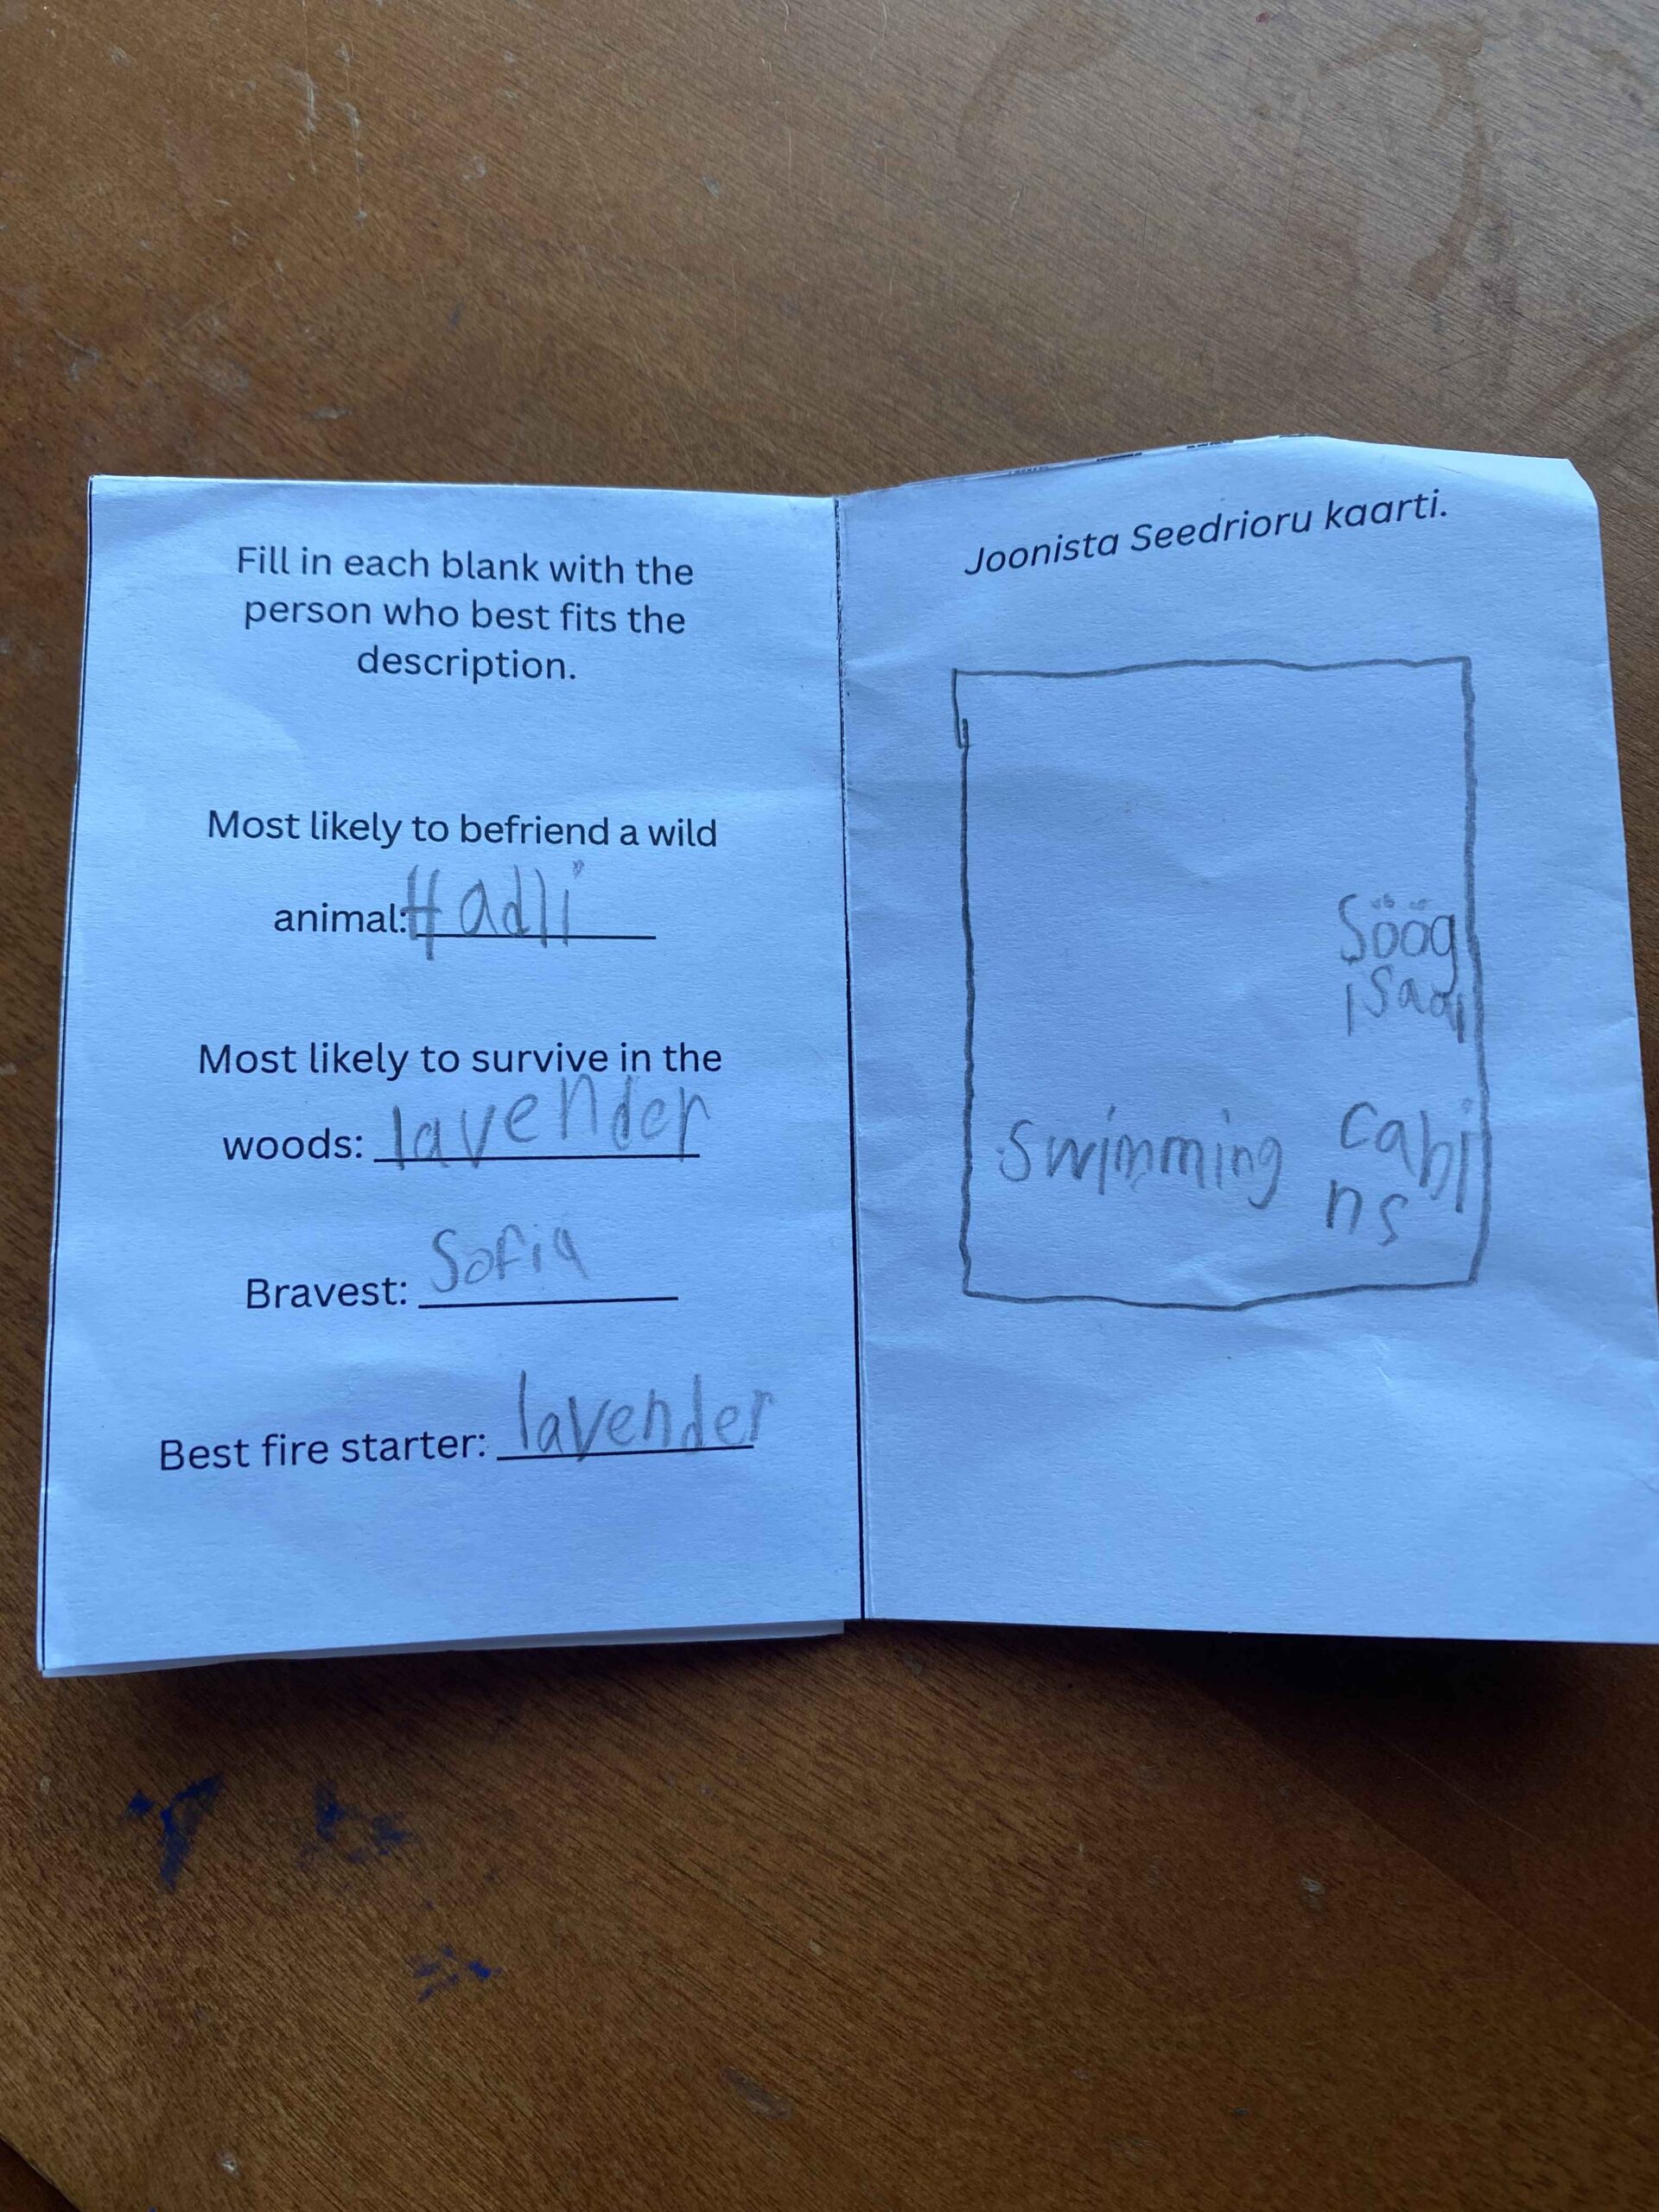 Fill in each blank with the
person who best fits the
description.
Most likely to befriend a wild
animal: Hadli
Most likely to survive in the
woods: lavender
Bravest: Sofia
Best fire starter: lavender
Joonista Seedrioru kaarti.
Söög
isaal
swimming
cabi
ns